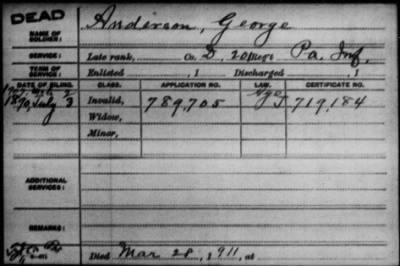 DEAD
NAME OF SOLDIER: Anderson, George
SERVICE: Late rank, Co. D, 201 Reg't Pa. Inf.
TERM OF SERVICE: Enlisted , 1 Discharged , 1
DATE OF FILING. CLASS. APPLICATION NO. LAW. CERTIFICATE NO.
1890, July 3 Invalid, 789,705 719,184
Widow,
Minor,
ADDITIONAL SERVICES:
REMARKS:
Died Mar 28, 1911, at